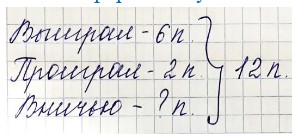 Выиграл - 6 п.
Проиграл - 2 п. } 12 п.
Вничью - ? п.